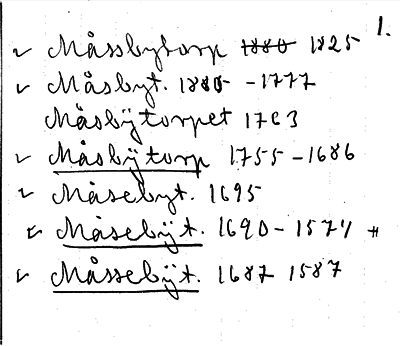 1.
Måssbytorp 1880 1825
Måsbyt. 1805 - 1777
Måsbÿtorpet 1763
Måsbÿtorp 1755 - 1686
Måsebyt. 1695
Måsebÿt. 1690 - 1574 #
Måssebÿt. 1687 1587